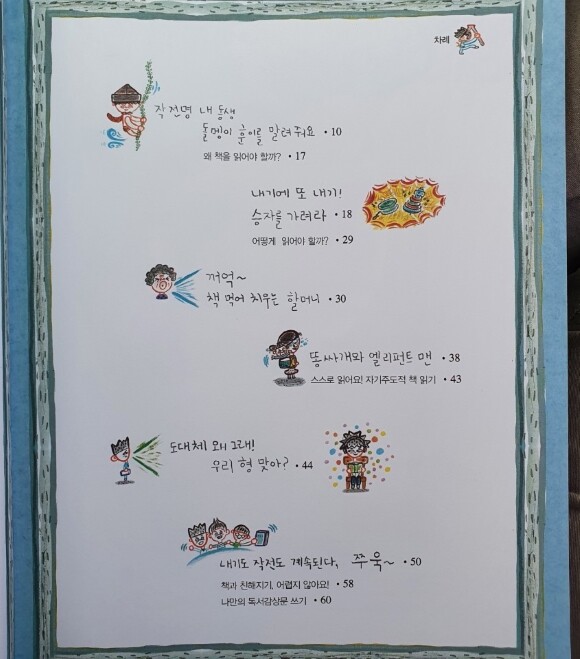 차례
작전명 내 동생
돌멩이 훈이를 말려줘요 • 10
왜 책을 읽어야 할까? • 17
내기에 또 내기!
승자를 가려라 • 18
어떻게 읽어야 할까? • 29
꺼억~
책 먹어 치우는 할머니 • 30
똥싸개와 엘리펀트 맨 • 38
스스로 읽어요! 자기주도적 책 읽기 • 43
도대체 왜 그래!
우리 형 맞아? • 44
내기도 작전도 계속된다, 쭈욱~ • 50
책과 친해지기, 어렵지 않아요! • 58
나만의 독서감상문 쓰기 • 60